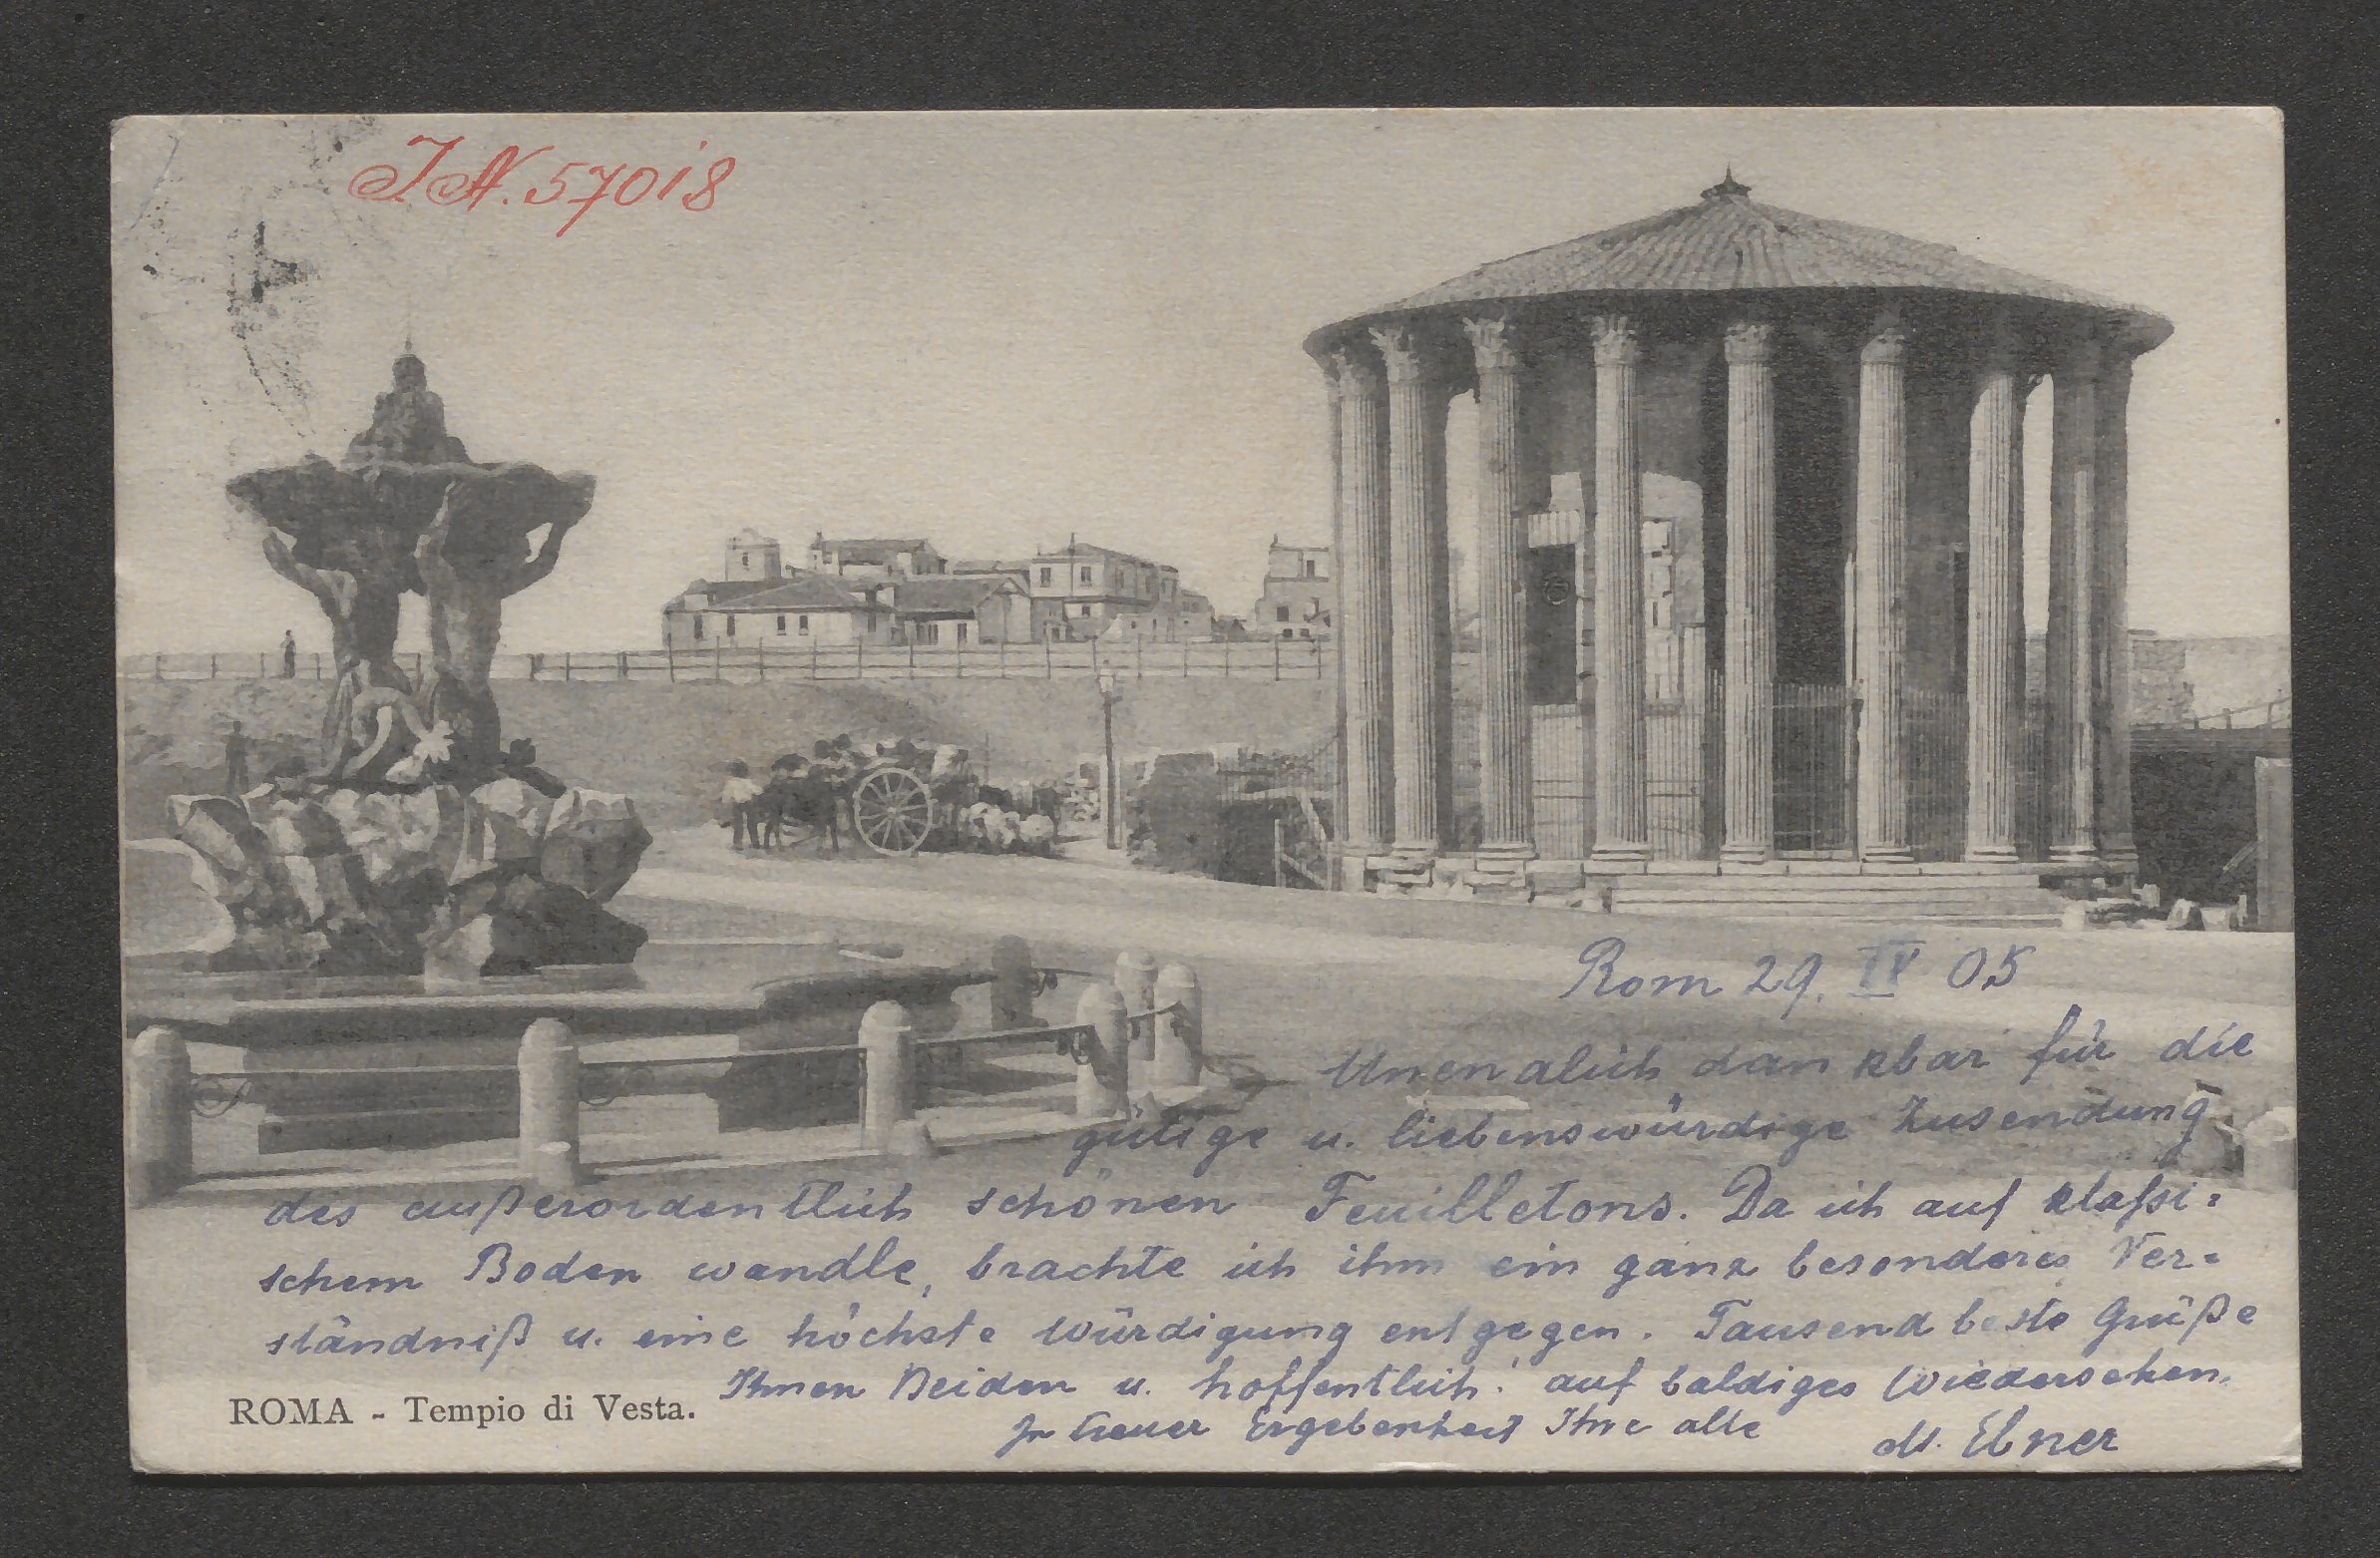 I.N. 57018
Rom 29. IV 05
Unendlich dankbar für die
gütige u. liebenswürdige Zusendung
des außerordentlich schönen Feuilletons. Da ich auf klaßi=
schem Boden wandle, brachte ich ihm ein ganz besonderes Ver=
ständniß u. eine höchste Würdigung entgegen. Tausend beste Grüße
Ihnen Beiden u. hoffentlich! auf baldiges Wiedersehen.
In treuer Ergebenheit Ihre alte M. Ebner
ROMA - Tempio di Vesta.